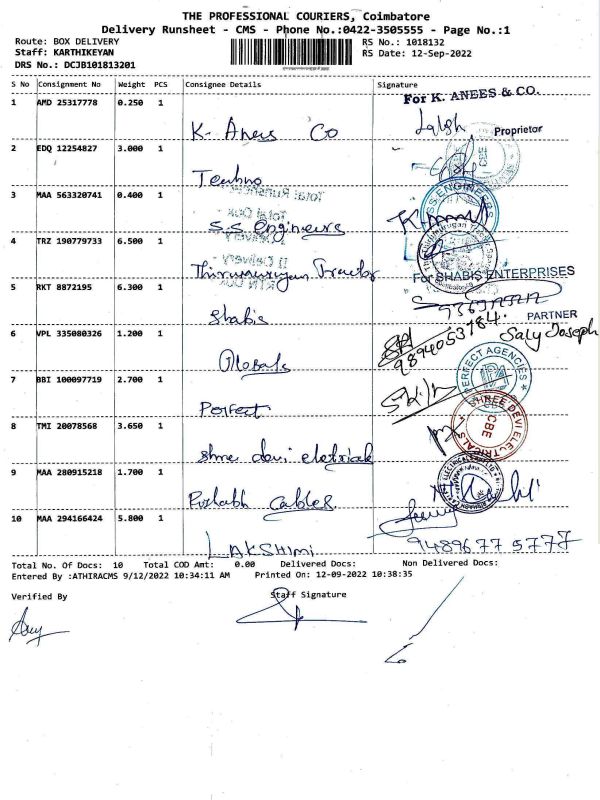 THE PROFESSIONAL COURIERS, Coimbatore
Delivery Runsheet - CMS - Phone No.:0422-3505555 - Page No.:1
Route: BOX DELIVERY RS No.: 1018132
Staff: KARTHIKEYAN RS Date: 12-Sep-2022
DRS No.: DCJB101813201
S No Consignment No Weight PCS Consignee Details Signature
For K. ANEES & CO.
1 AMD 25317778 0.250 1
K. Anees Co
Proprietor
2 EDQ 12254827 3.000 1
Techno
3 MAA 563320741 0.400 1
S.S. Engineers
S.S.ENGINEERS
4 TRZ 190779733 6.500 1
Thirumurugan Tractor
For SHABIS ENTERPRISES
5 RKT 8872195 6.300 1
Shabis
PARTNER
6 VPL 335080326 1.200 1
9894053784.
Saly Joseph
Globals
PERFECT AGENCIES
7 BBI 100097719 2.700 1
Perfect
8 TMI 20078568 3.650 1
SHREE DEVI ELECTRICALS
CBE
Shree devi eletricals
9 MAA 280915218 1.700 1
Rishabh cables
10 MAA 294166424 5.800 1
LAKSHIMI
9489677 5777
Total No. Of Docs: 10 Total COD Amt: 0.00 Delivered Docs: Non Delivered Docs:
Entered By :ATHIRACMS 9/12/2022 10:34:11 AM Printed On: 12-09-2022 10:38:35
Verified By Staff Signature